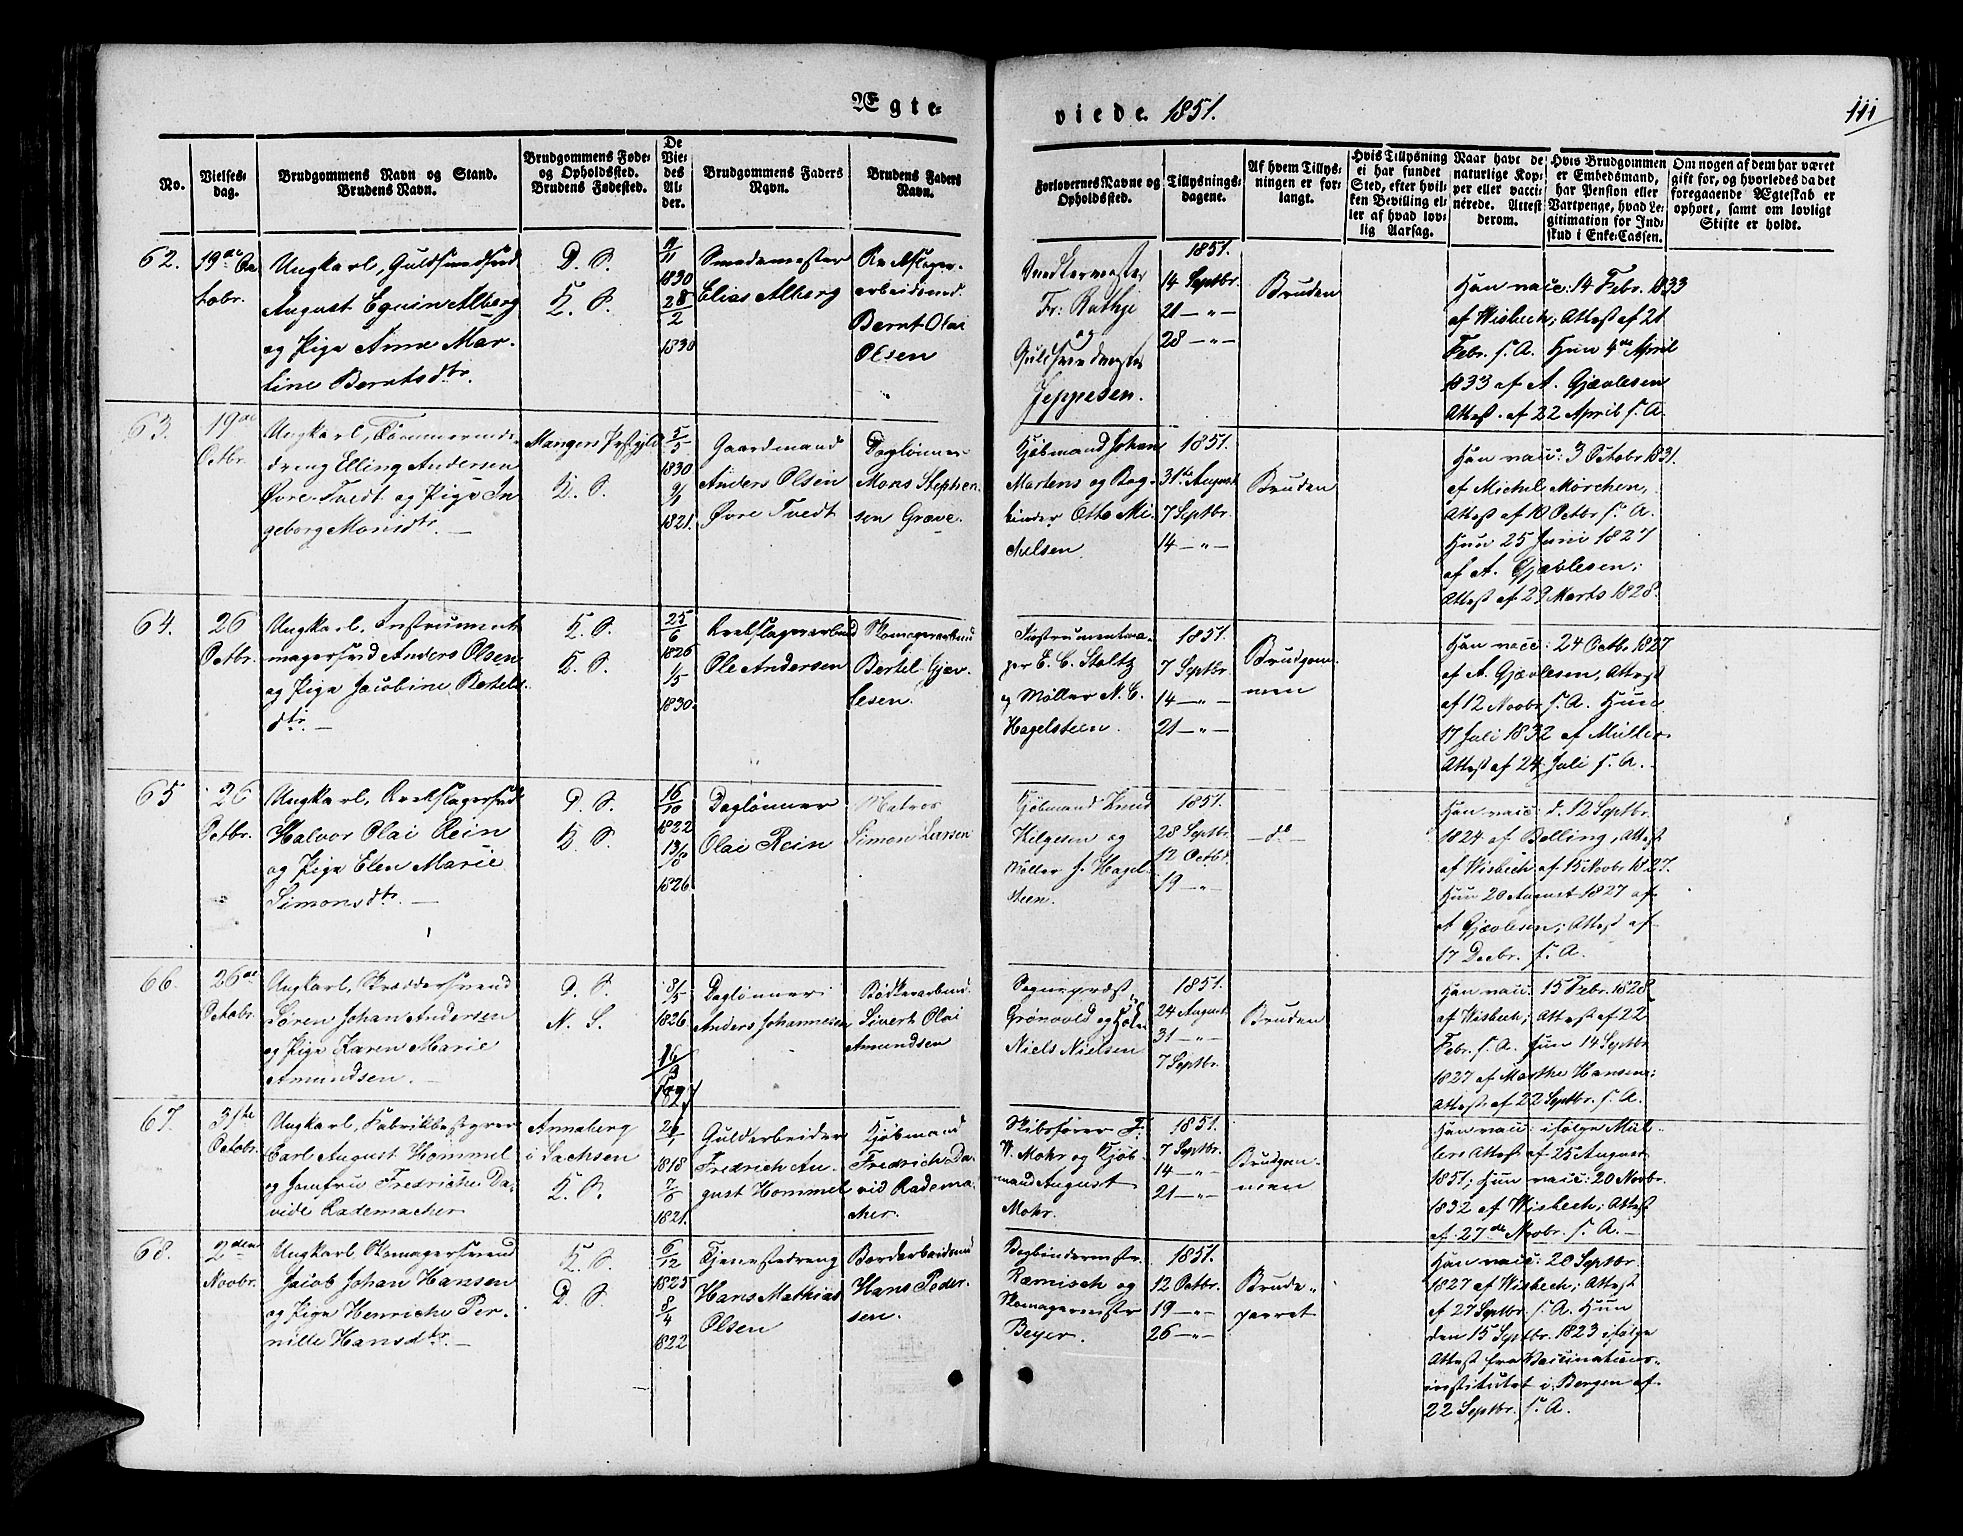 Ægte-
viede. 1851.
111
No.
Vielses-
dag.
Brudgommens Navn og Stand.
Brudens Navn.
Brudgommens Føde-
og Opholdssted.
Brudens Fødested.
De
Vie-
des
Al-
der.
Brudgommens Faders
Navn.
Brudens Faders
Navn.
Forlovernes Navne og
Opholdssted.
Tillysnings-
dagene.
Af hvem Tillys-
ningen er for-
langt.
Hvis Tillysning
ei har fundet
Sted, efter hvil-
ken Bevilling el-
ler af hvad lov-
lig Aarsag.
Naar havt de
naturlige Kop-
per eller vacci-
nérede. Attest
derom.
Hvis Brudgommen
er Embedsmand,
har Pension eller
Vartpenge, hvad Le-
gitimation for Ind-
skud i Enke-Cassen.
Om nogen af dem har været
gift før, og hvorledes da det
foregaaende Ægteskab er
ophørt, samt om lovligt
Skifte er holdt.
62.
19de Oc
tobr.
Ungkarl, Guldsmedsvd
August Equin Alberg
og Pige Anne Mar-
tine Berntsdtr.
D. S.
K. S.
1830
28/2
1830
Smedemester
Elias Alberg
Rebslager-
arbeidsmd.
Bernt Olai
Olsen
Snedkermester
Fr: Rathje
og
Guldsmedmester
Jeppesen.
1851.
14 Septbr
21 — " —
28 — " —
Bruden
Han vacc: 14 Febr. 1833
af Wisbech; Attest af 21
Febr. s. A. Hun 4de April
1833 af A. Gjævlesen
Attest. af 22 April s. A.
63.
19de
Octbr.
Ungkarl, Tømmermds-
dreng Elling Andersen
Øvre-Tvedt og Pige In
geborg Monsdtr. —
Mangers Præstgjeld
K. S.
5/5
1830
9/1
1821.
Gaardmand
Anders Olsen
Øvre Tvedt
Daglønner
Mons Stephen
sen Grave.
Kjøbmand Johan
Martens og Bog-
binder Otto Mi-
chelsen.
1851.
31te August
7 Septbr.
14 — " —
Bruden
Han vacc: 3 October 1831.
af Michel Mørchen,
Attest af 10 Octbr. s. A.
Hun 25 Juni 1827
af A. Gjævlesen;
Attest af 29 Marts 1828.
64.
26
Octbr.
Ungkarl, Instrument
magersvd Anders Olsen
og Pige Jacobine Bertels
dtr. —
K. S.
K. S.
25/6
1826
1/5
1830.
Rebslagerarbmd
Ole Andersen
Skomagerarbmd
Bertel Gjæv-
lesen.
Instrumentma-
ger E. C. Stoltz
og Møller N. C.
Hagelsteen.
1851.
7 Septbr
14 — " —
21 — " —
Brudgom-
men
Han vacc: 24 Octbr. 1827
af A. Gjævlesen, Attest
af 12 Novbr. s. A. Hun
17 Juli 1832 af Müller.
Attest af 24 Juli s. A. —
65
26
Octbr.
Ungkarl, Rebslagersvd
Halvor Olai Rein
og Pige Elen Marie
Simonsdtr. —
D. S.
K. S.
16/10
1822
13/8
1826.
Daglønner
Olai Rein
Matros
Simon Larsen
Kjøbmand Knud
Helgesen og
Møller J. Hagel-
steen.
1851.
28 Septbr.
12 Octbr.
19 — "
— do —
Han vacc: d. 12 Septbr.
1824 af Bolling, Attest
af Wisbech af 15 Novbr. 1827.
Hun 20 August 1827 af
A Gjævlesen; Attest af
17 Decbr. s. A.
66.
26de
Octobr.
Ungkarl, Skræddersvend
Søren Johan Andersen
og Pige Karen Marie
Amundsen. —
D. S.
N. S.
8/5
1826
16/3
Daglønner
Anders Johannesen
Bødkerarbmd.
Sivert Olai
Amundsen
Sogneprest
Grønvold og
Niels Nielsen
1851.
24 August
31 — " —
7 Septbr.
Bruden
Han vacc: 15 Febr. 1828
af Wisbech; Attest af 22
Febr. s. A. Hun 14 Septbr
1827 af Marthe Hansen;
Attest af 22 Septbr. s. A.
67.
31te
Octobr.
Ungkarl, Fabrikbestyrer
Carl August Hommel
og Jomfru Fredriche Da-
vide Rademacher
Annaberg
i Sachsen
K. S.
1818
7/8
1821.
Guldarbeider
Fredrich Au-
gust Hommel
Kjøbmand
Fredrich Da-
vid Radema-
cher.
Skibsfører F.
W. Mohr og Kjøb-
mand August
Mohr.
1851.
7 Septbr.
14 — " —
21 — " —
Brudgom-
men
Han vacc: ifølge Mül-
lers Attest af 25 August
1851; Hun vacc: 20 Novbr.
1832 af Wisbech; Attest
af 27de Novbr. s. A. —
68.
2den
Novbr.
Ungkarl Skomagersvend
Jacob Johan Hansen
og Pige Henriche Per-
nille Hansdtr. —
K. S.
D. S.
6/12
1825
8/4
1822
Tjenestedreng
Hans Mathias
Olsen
Borderbeidsmd
Hans Peder-
sen.
Bogbindermstr.
Ræmisch og
Skomagermestr
Beyer.
1851.
12 Octbr.
19 — " —
26 — " —
Brude-
parret
Han vacc: 20 Septbr.
1827 af Wisbech; Attest
af 27 Septbr. s. A. Hun
den 15 Septbr. 1823 ifølge
Attest fra Vaccinations-
institutet i Bergen af
22 Septbr. s. A.